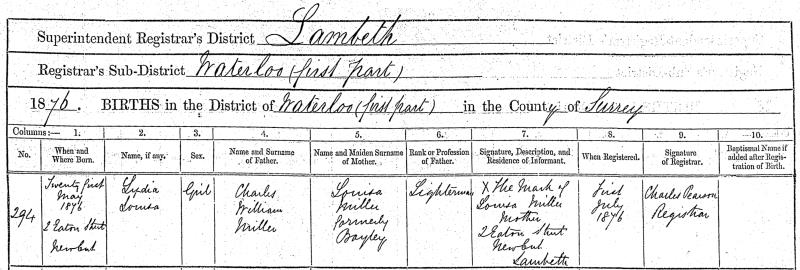 Superintendent Registrar's District Lambeth
Registrar's Sub-District Waterloo (first part)
1876. BIRTHS in the District of Waterloo (first part) in the County of Surrey
Columns:— 1. 2. 3. 4. 5. 6. 7. 8. 9. 10.
No. When and Where Born. Name, if any. Sex. Name and Surname of Father. Name and Maiden Surname of Mother. Rank or Profession of Father. Signature, Description, and Residence of Informant. When Registered. Signature of Registrar. Baptismal Name if added after Registration of Birth.
294
Twenty first
May
1876
2 Eaton Street
New Cut
Lydia
Louisa
Girl
Charles
William
Miller
Louisa
Miller
formerly
Bayley
Lighterman
X The Mark of
Louisa Miller
Mother
2 Eaton Street
New Cut
Lambeth
First
July
1876
Charles Pearson
Registrar